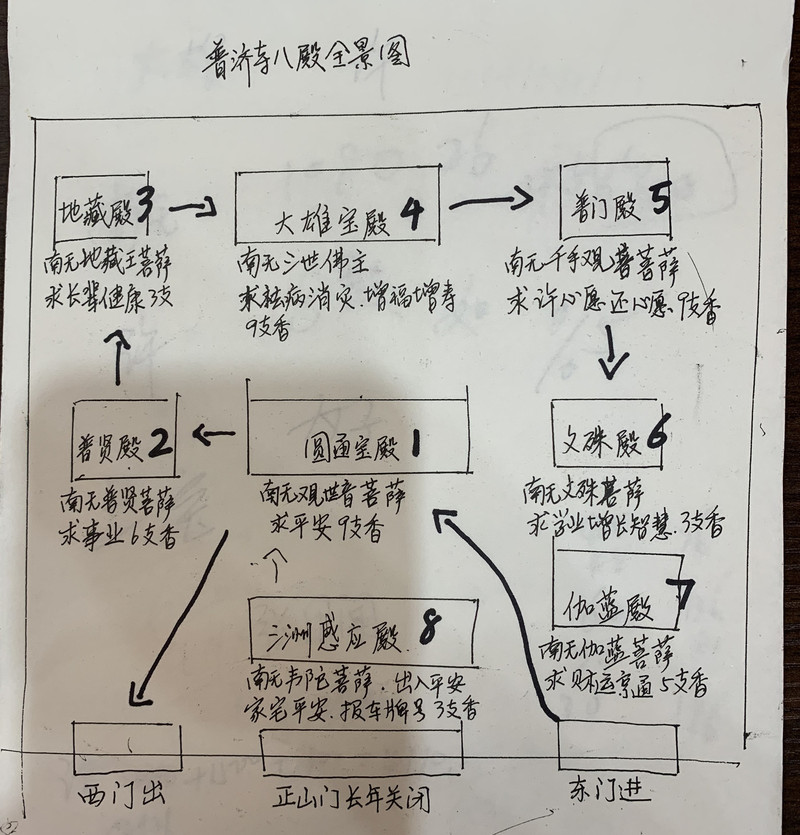 普济寺八殿全景图
地藏殿 3
南无地藏王菩萨
求长辈健康3支
大雄宝殿 4
南无三世佛主
求祛病消灾.增福增寿
9支香
普门殿 5
南无千手观音菩萨
求许心愿还心愿.9支香
普贤殿 2
南无普贤菩萨
求事业6支香
圆通宝殿 1
南无观世音菩萨
求平安9支香
文殊殿 6
南无文殊菩萨
求学业增长智慧.3支香
伽蓝殿 7
南无伽蓝菩萨
求财运亨通5支香
三洲感应殿. 8
南无韦陀菩萨.出入平安
家宅平安.报车牌号3支香
西门出
正山门长年关闭
东门进